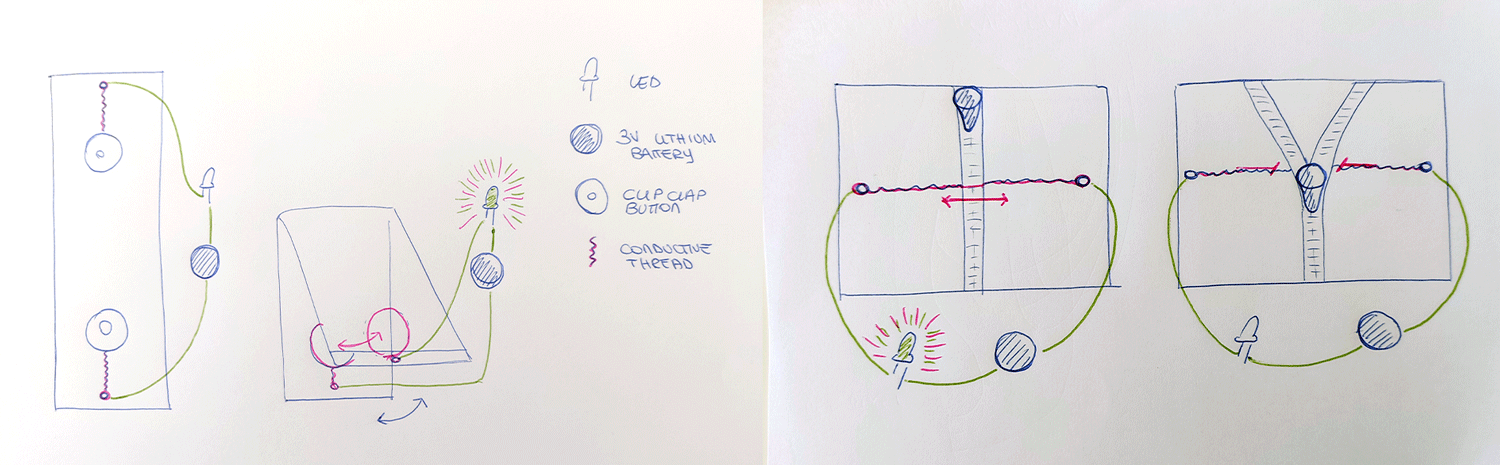 LED
3V LITHIUM
BATTERY
CLIP CLAP
BUTTON
CONDUCTIVE
THREAD